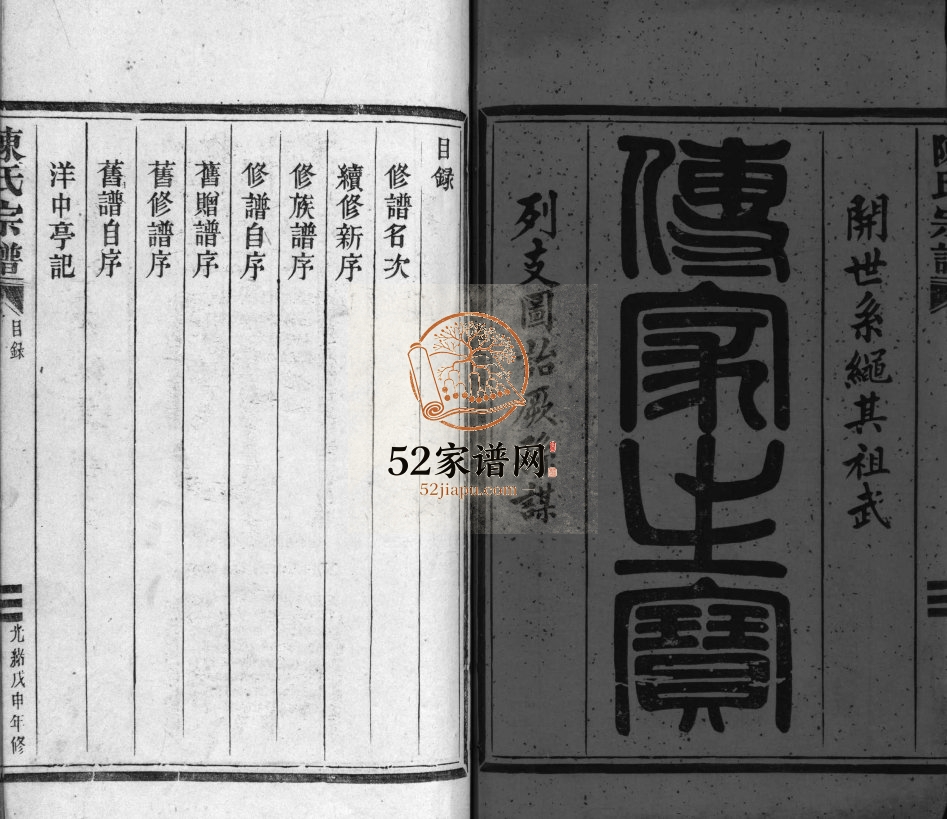 開世系繩其祖武
傳家之寶
列支圖詒厥孫謀
目録
修譜名次
續修新序
修族譜序
修譜自序
舊贈譜序
舊修譜序
舊譜自序
洋中亭記
陳氏宗譜
目録
光緒戊申年修
52家谱网
52jiapu.com